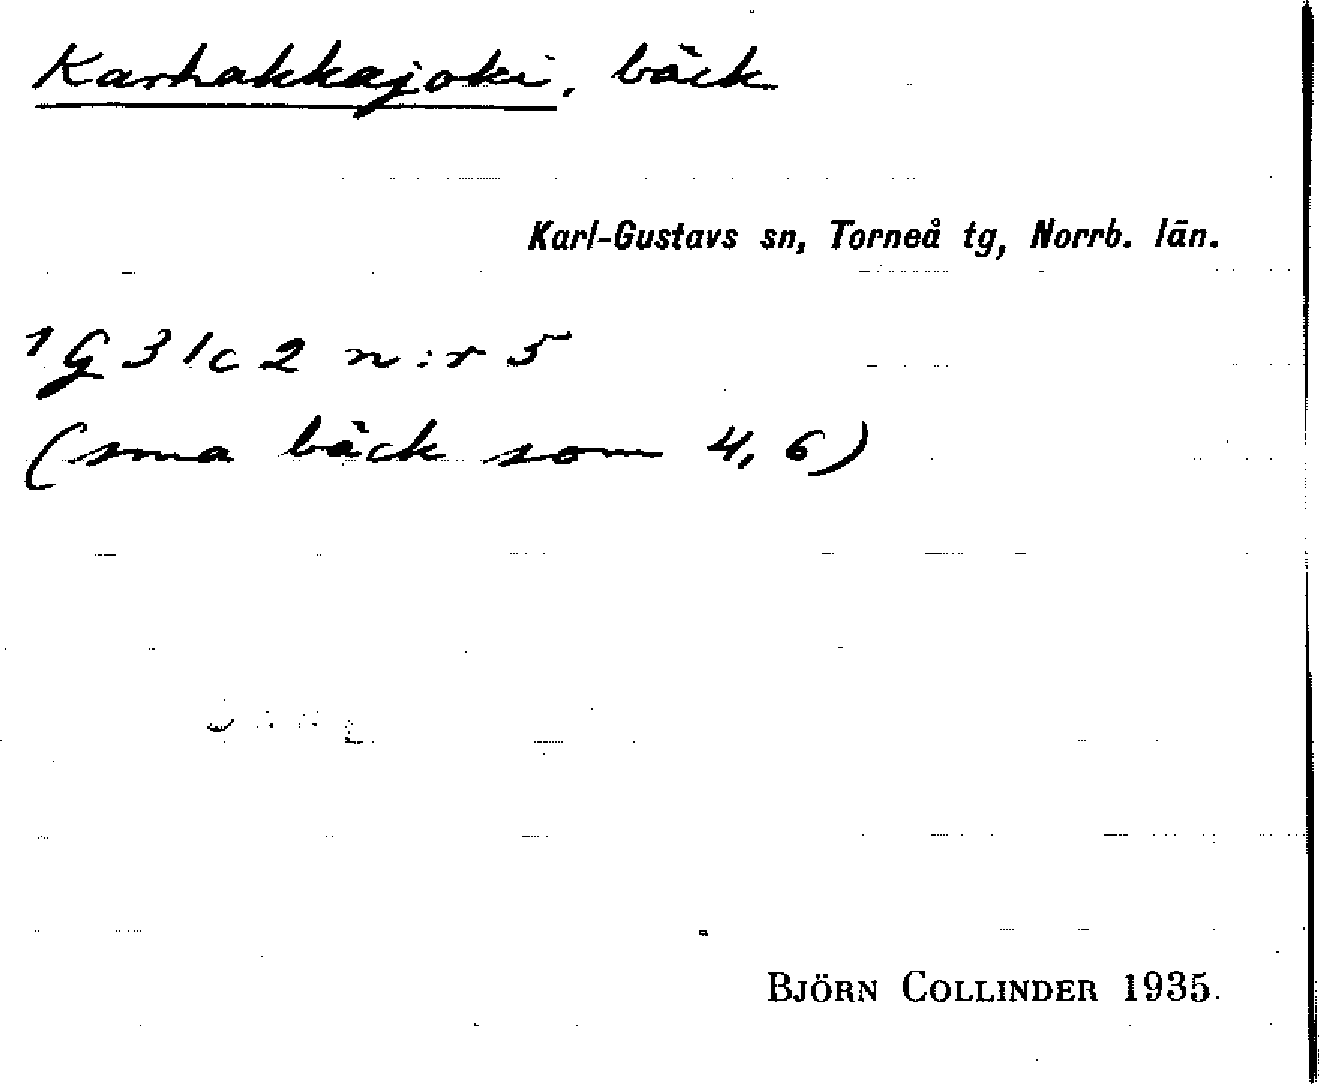 Karhakkajoki, bäck
Karl-Gustavs sn, Torneå tg, Norrb. län.
1 G 31c2 n:r 5
(sma bäck som 4, 6)
BJÖRN COLLINDER 1935.